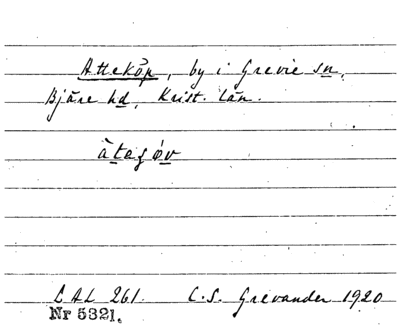 Atteköp, by i Grevie sn,
Bjäre hd, Krist. län.
àtaʃøv
LAL 261. C.S. Grevander 1920
Nr 5321.